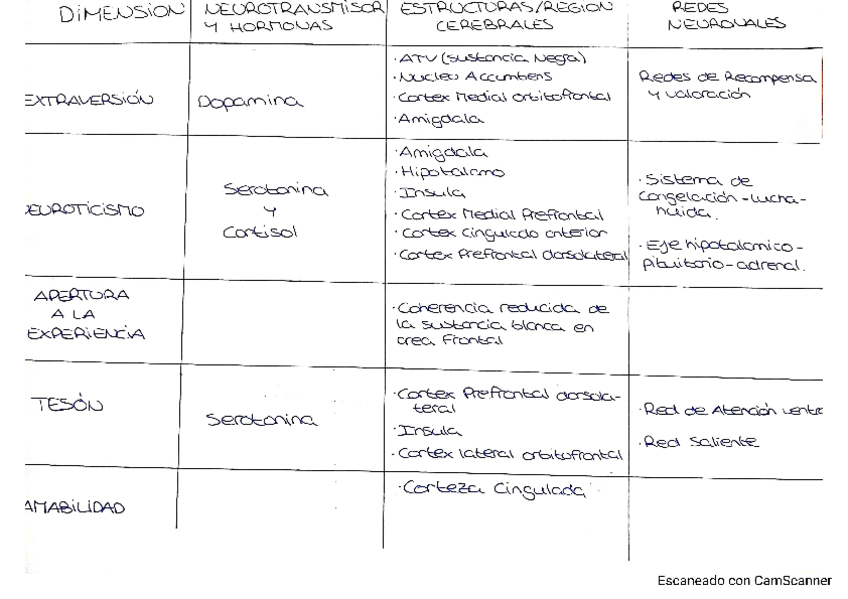 DIMENSION
NEUROTRANSMISOR
Y HORMONAS
ESTRUCTURAS/REGION
CEREBRALES
REDES
NEURONALES
EXTRAVERSIÓN
Dopamina
·ATV (sustancia Negra)
·Nucleo Accumbens
·Cortex Medial orbitofrontal
·Amigdala
Redes de Recompensa
y valoración
NEUROTICISMO
Serotonina
y
Cortisol
·Amigdala
·Hipotalamo
·Insula
·Cortex Medial Prefrontal
·Cortex cingulado anterior
·Cortex Prefrontal dorsolateral
·Sistema de
congelación-lucha-
huida.
·Eje hipotalamico-
pituitorio-adrenal.
APERTURA
A LA
EXPERIENCIA
·Coherencia reducida de
la sustancia blanca en
area Frontal
TESÓN
Serotonina
·Cortex Prefrontal dorsola-
teral
·Insula
·Cortex lateral orbitofrontal
·Red de Atención ventr
·Red Saliente
AMABILIDAD
·Corteza Cingulada
Escaneado con CamScanner